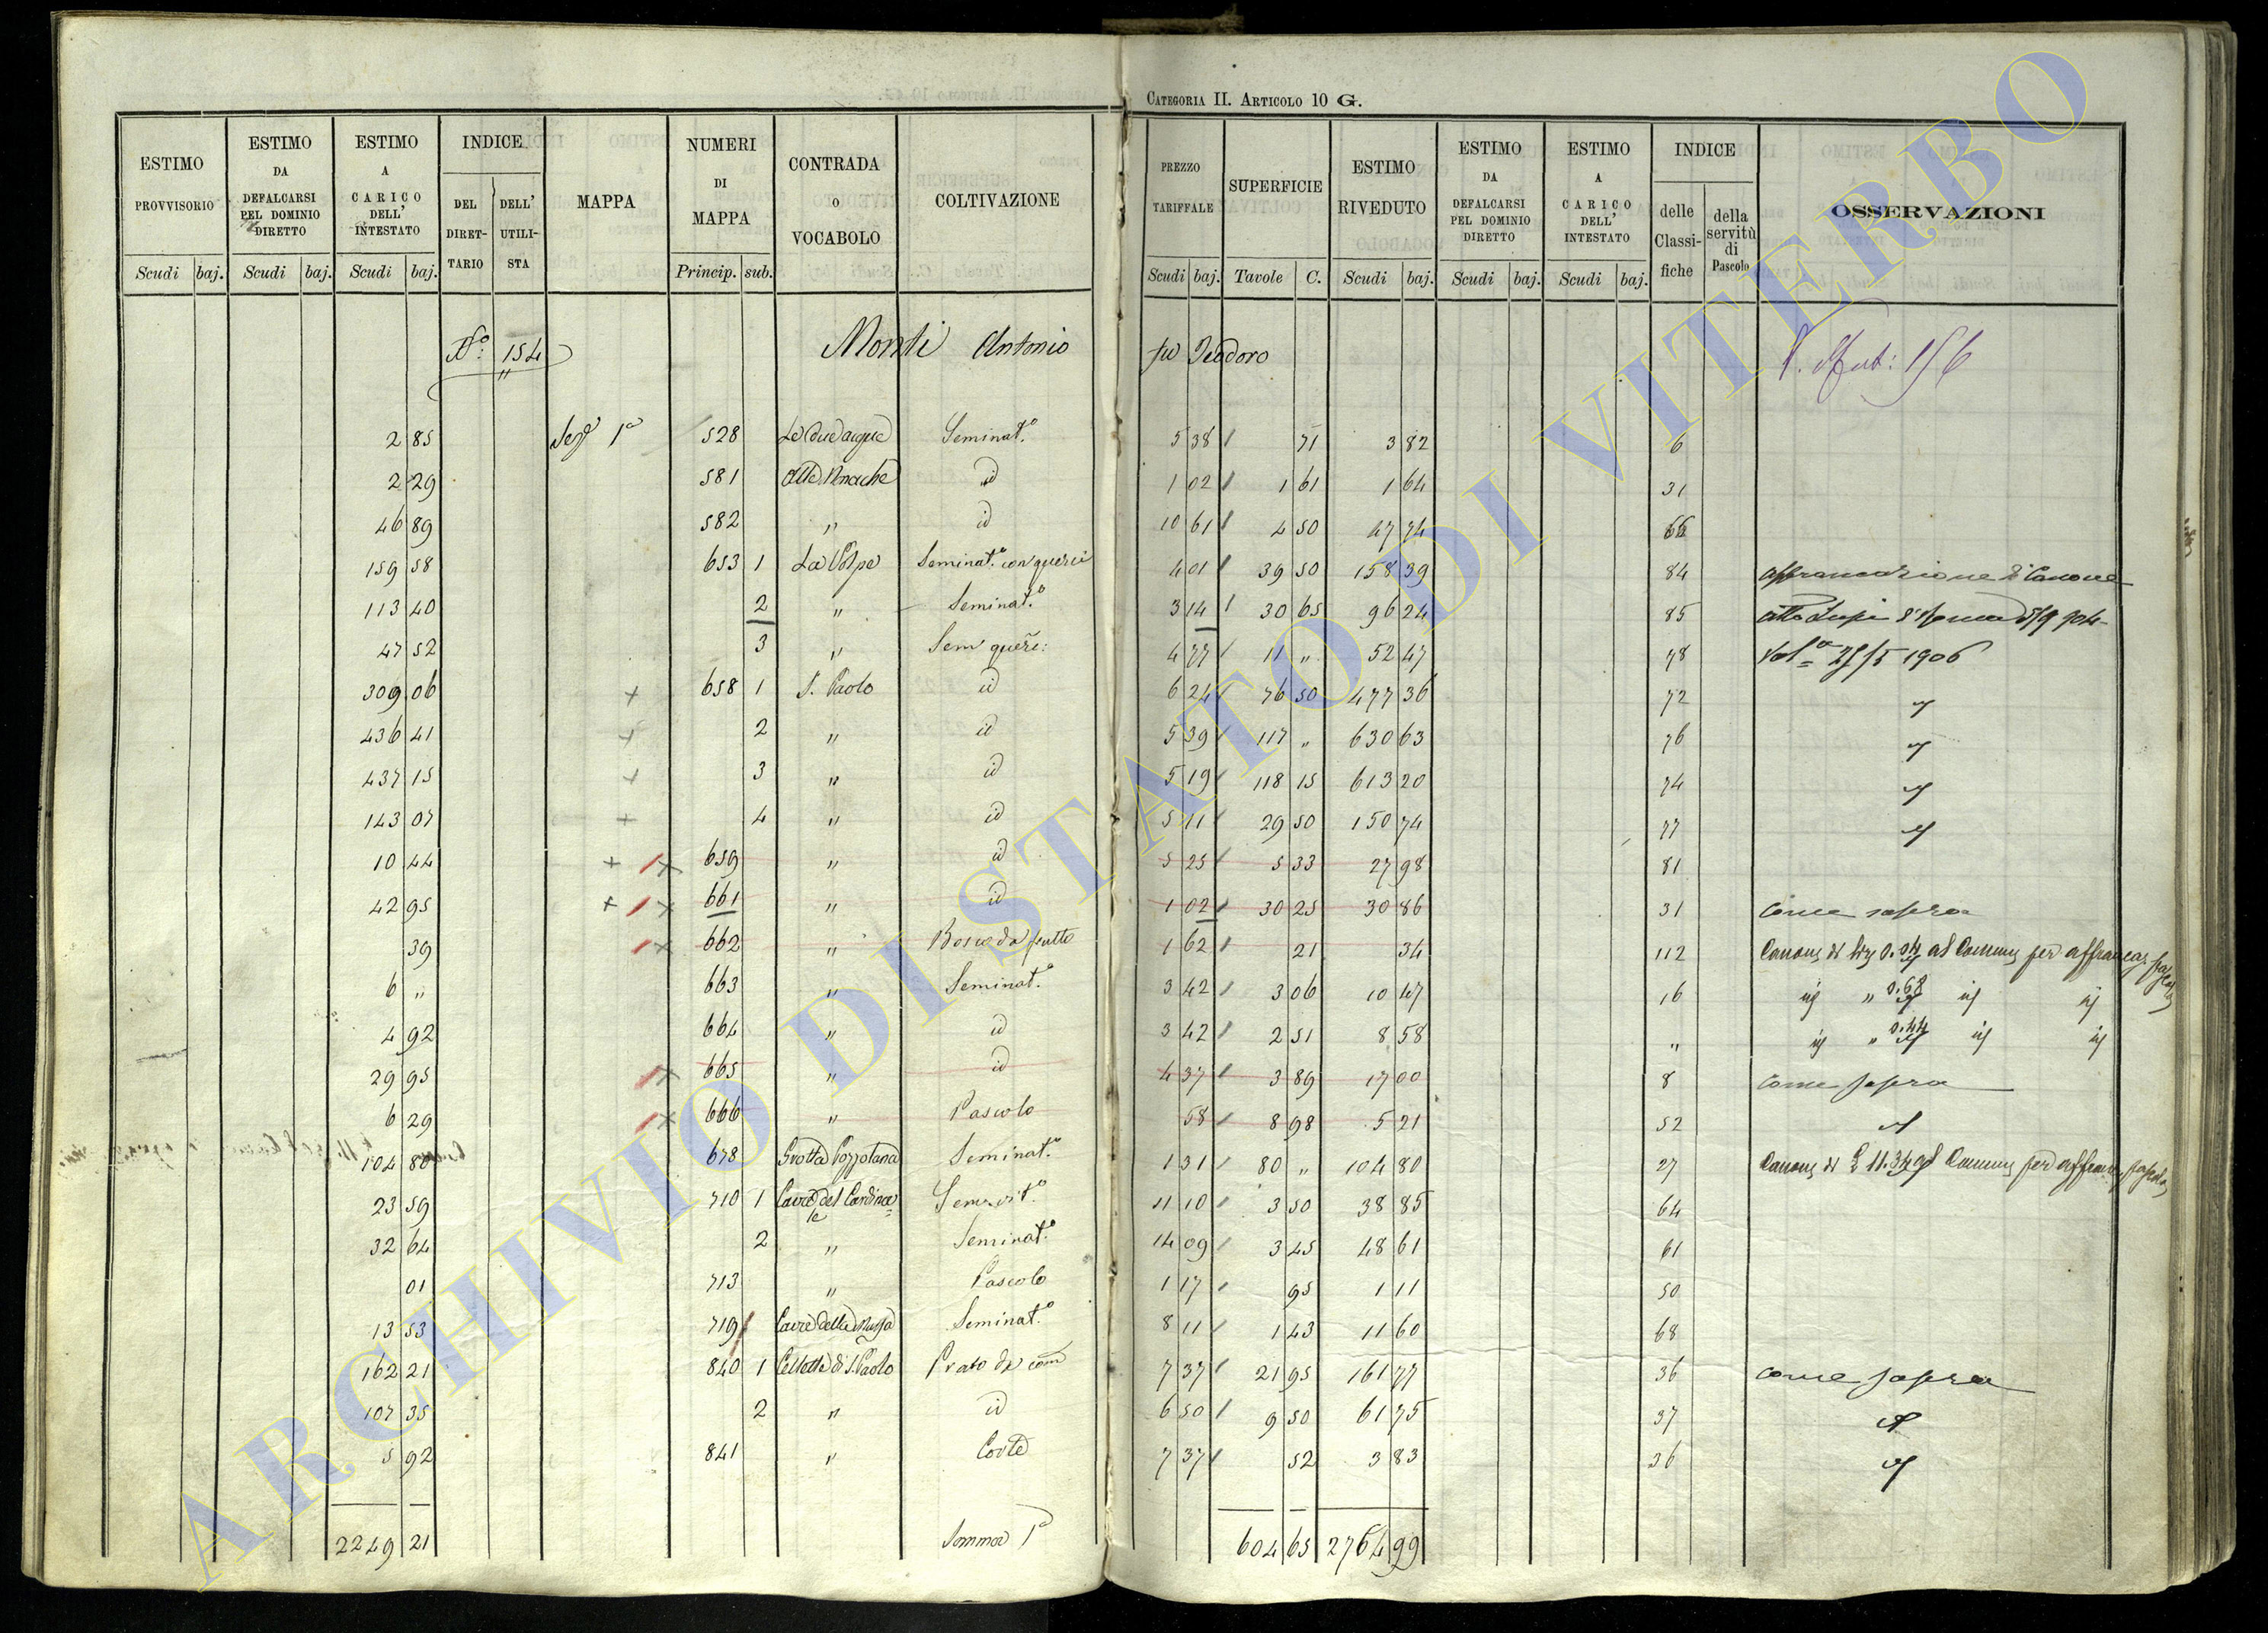 CATEGORIA II. ARTICOLO 10 G.
ESTIMO PROVVISORIO Scudi baj. | ESTIMO DA DEFALCARSI PEL DOMINIO DIRETTO Scudi baj. | ESTIMO A CARICO DELL' INTESTATO Scudi baj. | INDICE DEL DIRET-TARIO | DELL' UTILI-STA | MAPPA | NUMERI DI MAPPA Princip. sub. | CONTRADA O VOCABOLO | COLTIVAZIONE | PREZZO TARIFFALE Scudi baj. | SUPERFICIE Tavole C. | ESTIMO RIVEDUTO Scudi baj. | ESTIMO DA DEFALCARSI PEL DOMINIO DIRETTO Scudi baj. | ESTIMO A CARICO DELL' INTESTATO Scudi baj. | INDICE delle Classi-fiche | della servitù di Pascolo | OSSERVAZIONI
N.º 154 Monti Antonio fu Teodoro 156
2 85 Sezº 1ª 528 Le due acque Seminat.º 5 38 71 3 82 6
2 29 581 id 1 02 1 61 1 64 31
46 89 582 " id 10 61 4 50 47 74 66
159 58 653 1 La Volpe Seminat.º con querci 4 01 39 50 158 39 84 affrancazione di Canone
113 40 2 " Seminat.º 3 14 30 65 96 24 85
47 52 3 " Sem querc: 4 77 11 " 52 47 78 Volª 25/5 1906
309 06 + 658 1 S. Paolo id 6 24 76 50 477 36 72 id
436 41 + 2 " id 5 39 117 " 630 63 76 id
437 15 + 3 " id 5 19 118 15 613 20 74 id
143 07 + 4 " id 5 11 29 50 150 74 77 id
10 44 + 1 x 659 " id 5 25 5 33 27 98 81
42 95 + 1 x 661 " id 1 02 30 25 30 86 31 Come sopra
39 1 x 662 " Bosco da frutto 1 62 21 34 112 Canone di Lire 0.04 al Comune per affrancaz. pascolo
6 " 663 " Seminat.º 3 42 3 06 10 47 16 id " 0.68 id id
4 92 664 " id 3 42 2 51 8 58 " id " 0.44 id id
29 95 1 x 665 " id 4 37 3 89 17 00 8 Come sopra
6 29 1 x 666 " Pascolo 58 8 98 5 21 52 id
104 80 678 Grotta Pozzolana Seminat.º 1 31 80 " 104 80 27 Canone di £ 11.34 al Comune per affrancaz pascolo
23 59 710 1 Cavrè del Cardinale Sem. vit.º 11 10 3 50 38 85 64
32 64 2 " Seminat.º 14 09 3 45 48 61 61
01 713 " Pascolo 1 17 95 1 11 50
13 53 719 Cavrè della Seminat.º 8 11 1 43 11 60 68
162 21 840 1 Cellette di S. Paolo Prato da 7 37 21 95 161 77 36 Come sopra
107 35 2 " id 6 50 9 50 61 75 37 id
5 92 841 " Corte 7 37 52 3 83 36 id
2249 21 Somma 1ª 604 65 2764 99
ARCHIVIO DI STATO DI VITERBO